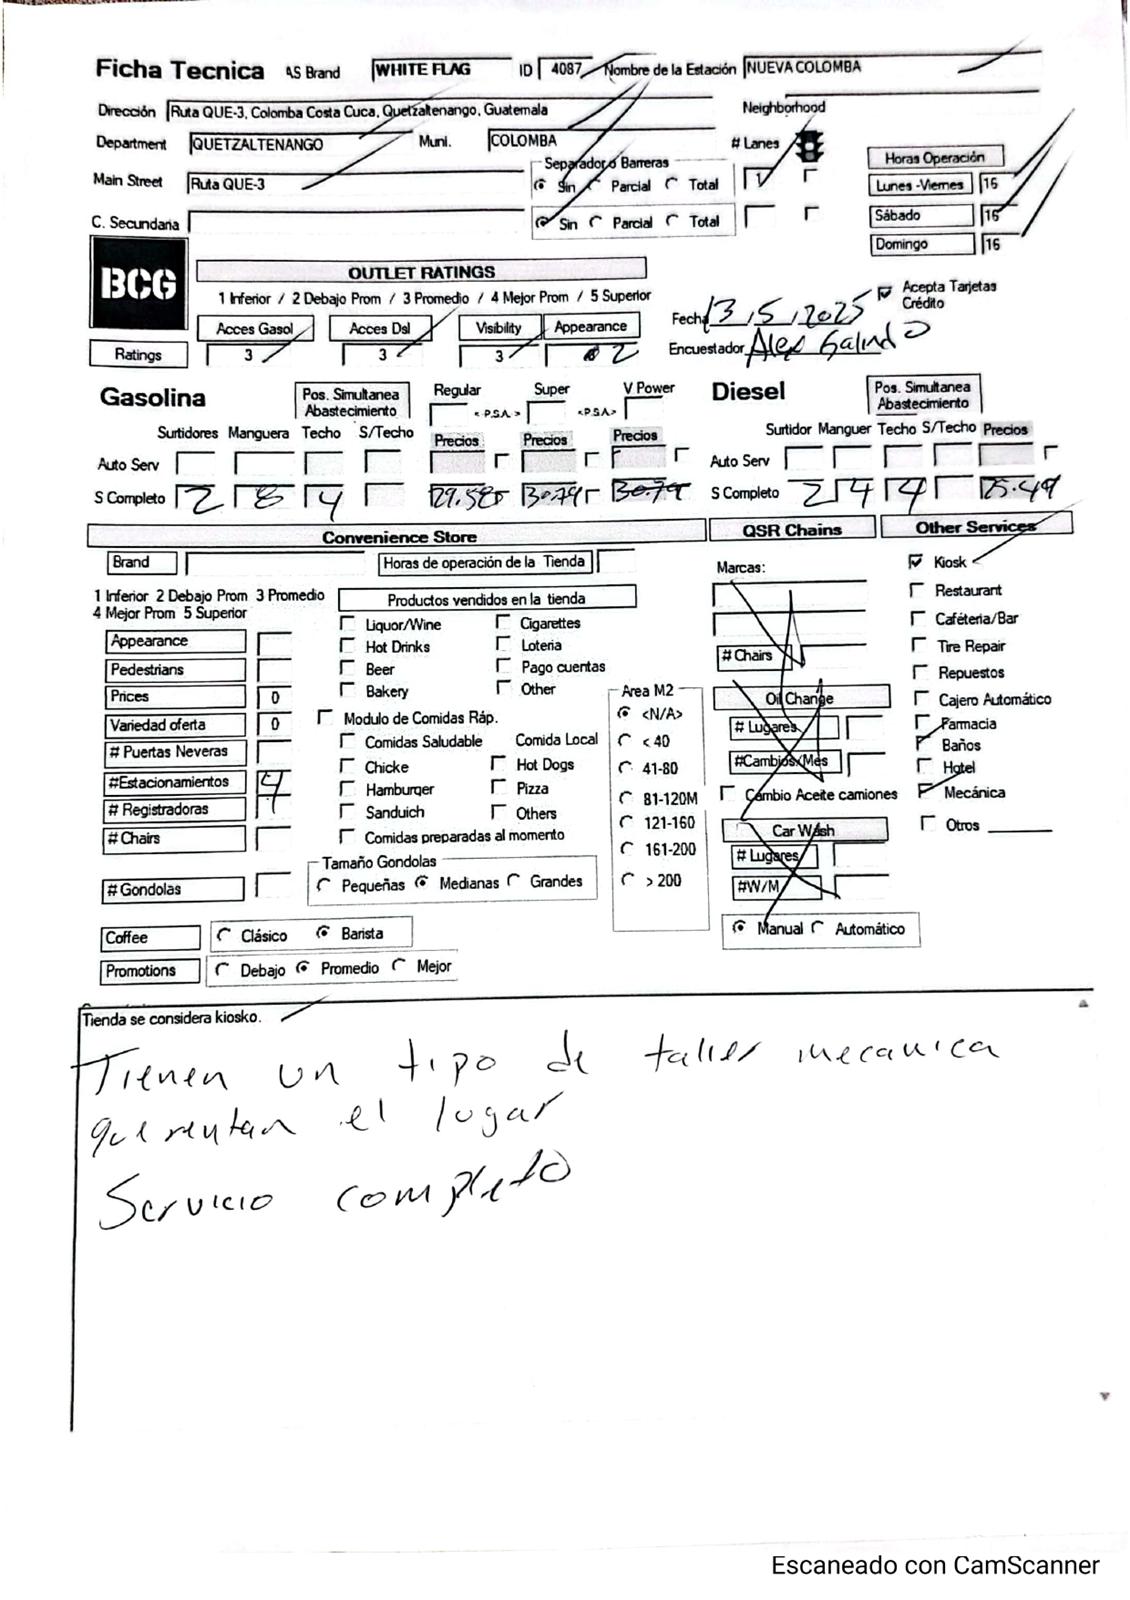 Ficha Tecnica AS Brand WHITE FLAG ID 4087 Nombre de la Estación NUEVA COLOMBA
Dirección Ruta QUE-3, Colomba Costa Cuca, Quetzaltenango, Guatemala Neighborhood
Department QUETZALTENANGO Muni. COLOMBA # Lanes
Separador o Barreras
Main Street Ruta QUE-3 Sin Parcial Total 1
C. Secundaria Sin Parcial Total
Horas Operación
Lunes -Viernes 16
Sábado 16
Domingo 16
BCG
OUTLET RATINGS
1 Inferior / 2 Debajo Prom / 3 Promedio / 4 Mejor Prom / 5 Superior
Acces Gasol Acces Dsl Visibility Appearance
Ratings 3 3 3 2
Acepta Tarjetas
Crédito
Fecha 13,5,2025
Encuestador Alex Galindo
Gasolina Pos. Simultanea
Abastecimiento
Regular Super V Power
< P.S.A. > <P.S.A>
Surtidores Manguera Techo S/Techo Precios Precios Precios
Auto Serv
S Completo 2 8 4 30.79 30.79
Diesel Pos. Simultanea
Abastecimiento
Surtidor Manguer Techo S/Techo Precios
Auto Serv
S Completo 2 4 4 25.49
Convenience Store
Brand Horas de operación de la Tienda
1 Inferior 2 Debajo Prom 3 Promedio
4 Mejor Prom 5 Superior
Appearance
Pedestrians
Prices 0
Variedad oferta 0
# Puertas Neveras
#Estacionamientos 4
# Registradoras
# Chairs
# Gondolas
Productos vendidos en la tienda
Liquor/Wine Cigarettes
Hot Drinks Loteria
Beer Pago cuentas
Bakery Other
Modulo de Comidas Ráp.
Comidas Saludable Comida Local
Chicke Hot Dogs
Hamburger Pizza
Sanduich Others
Comidas preparadas al momento
Tamaño Gondolas
Pequeñas Medianas Grandes
Area M2
<N/A>
< 40
41-80
81-120M
121-160
161-200
> 200
Coffee Clásico Barista
Promotions Debajo Promedio Mejor
QSR Chains
Marcas:
# Chairs
Oil Change
# Lugares
#Cambios/Mes
Cambio Aceite camiones
Car Wash
# Lugares
#W/M
Manual Automático
Other Services
Kiosk
Restaurant
Caféteria/Bar
Tire Repair
Repuestos
Cajero Automático
Farmacia
Baños
Hotel
Mecánica
Otros
Tienda se considera kiosko.
Tienen un tipo de taller mecanica
que rentan el lugar
Servicio completo
Escaneado con CamScanner